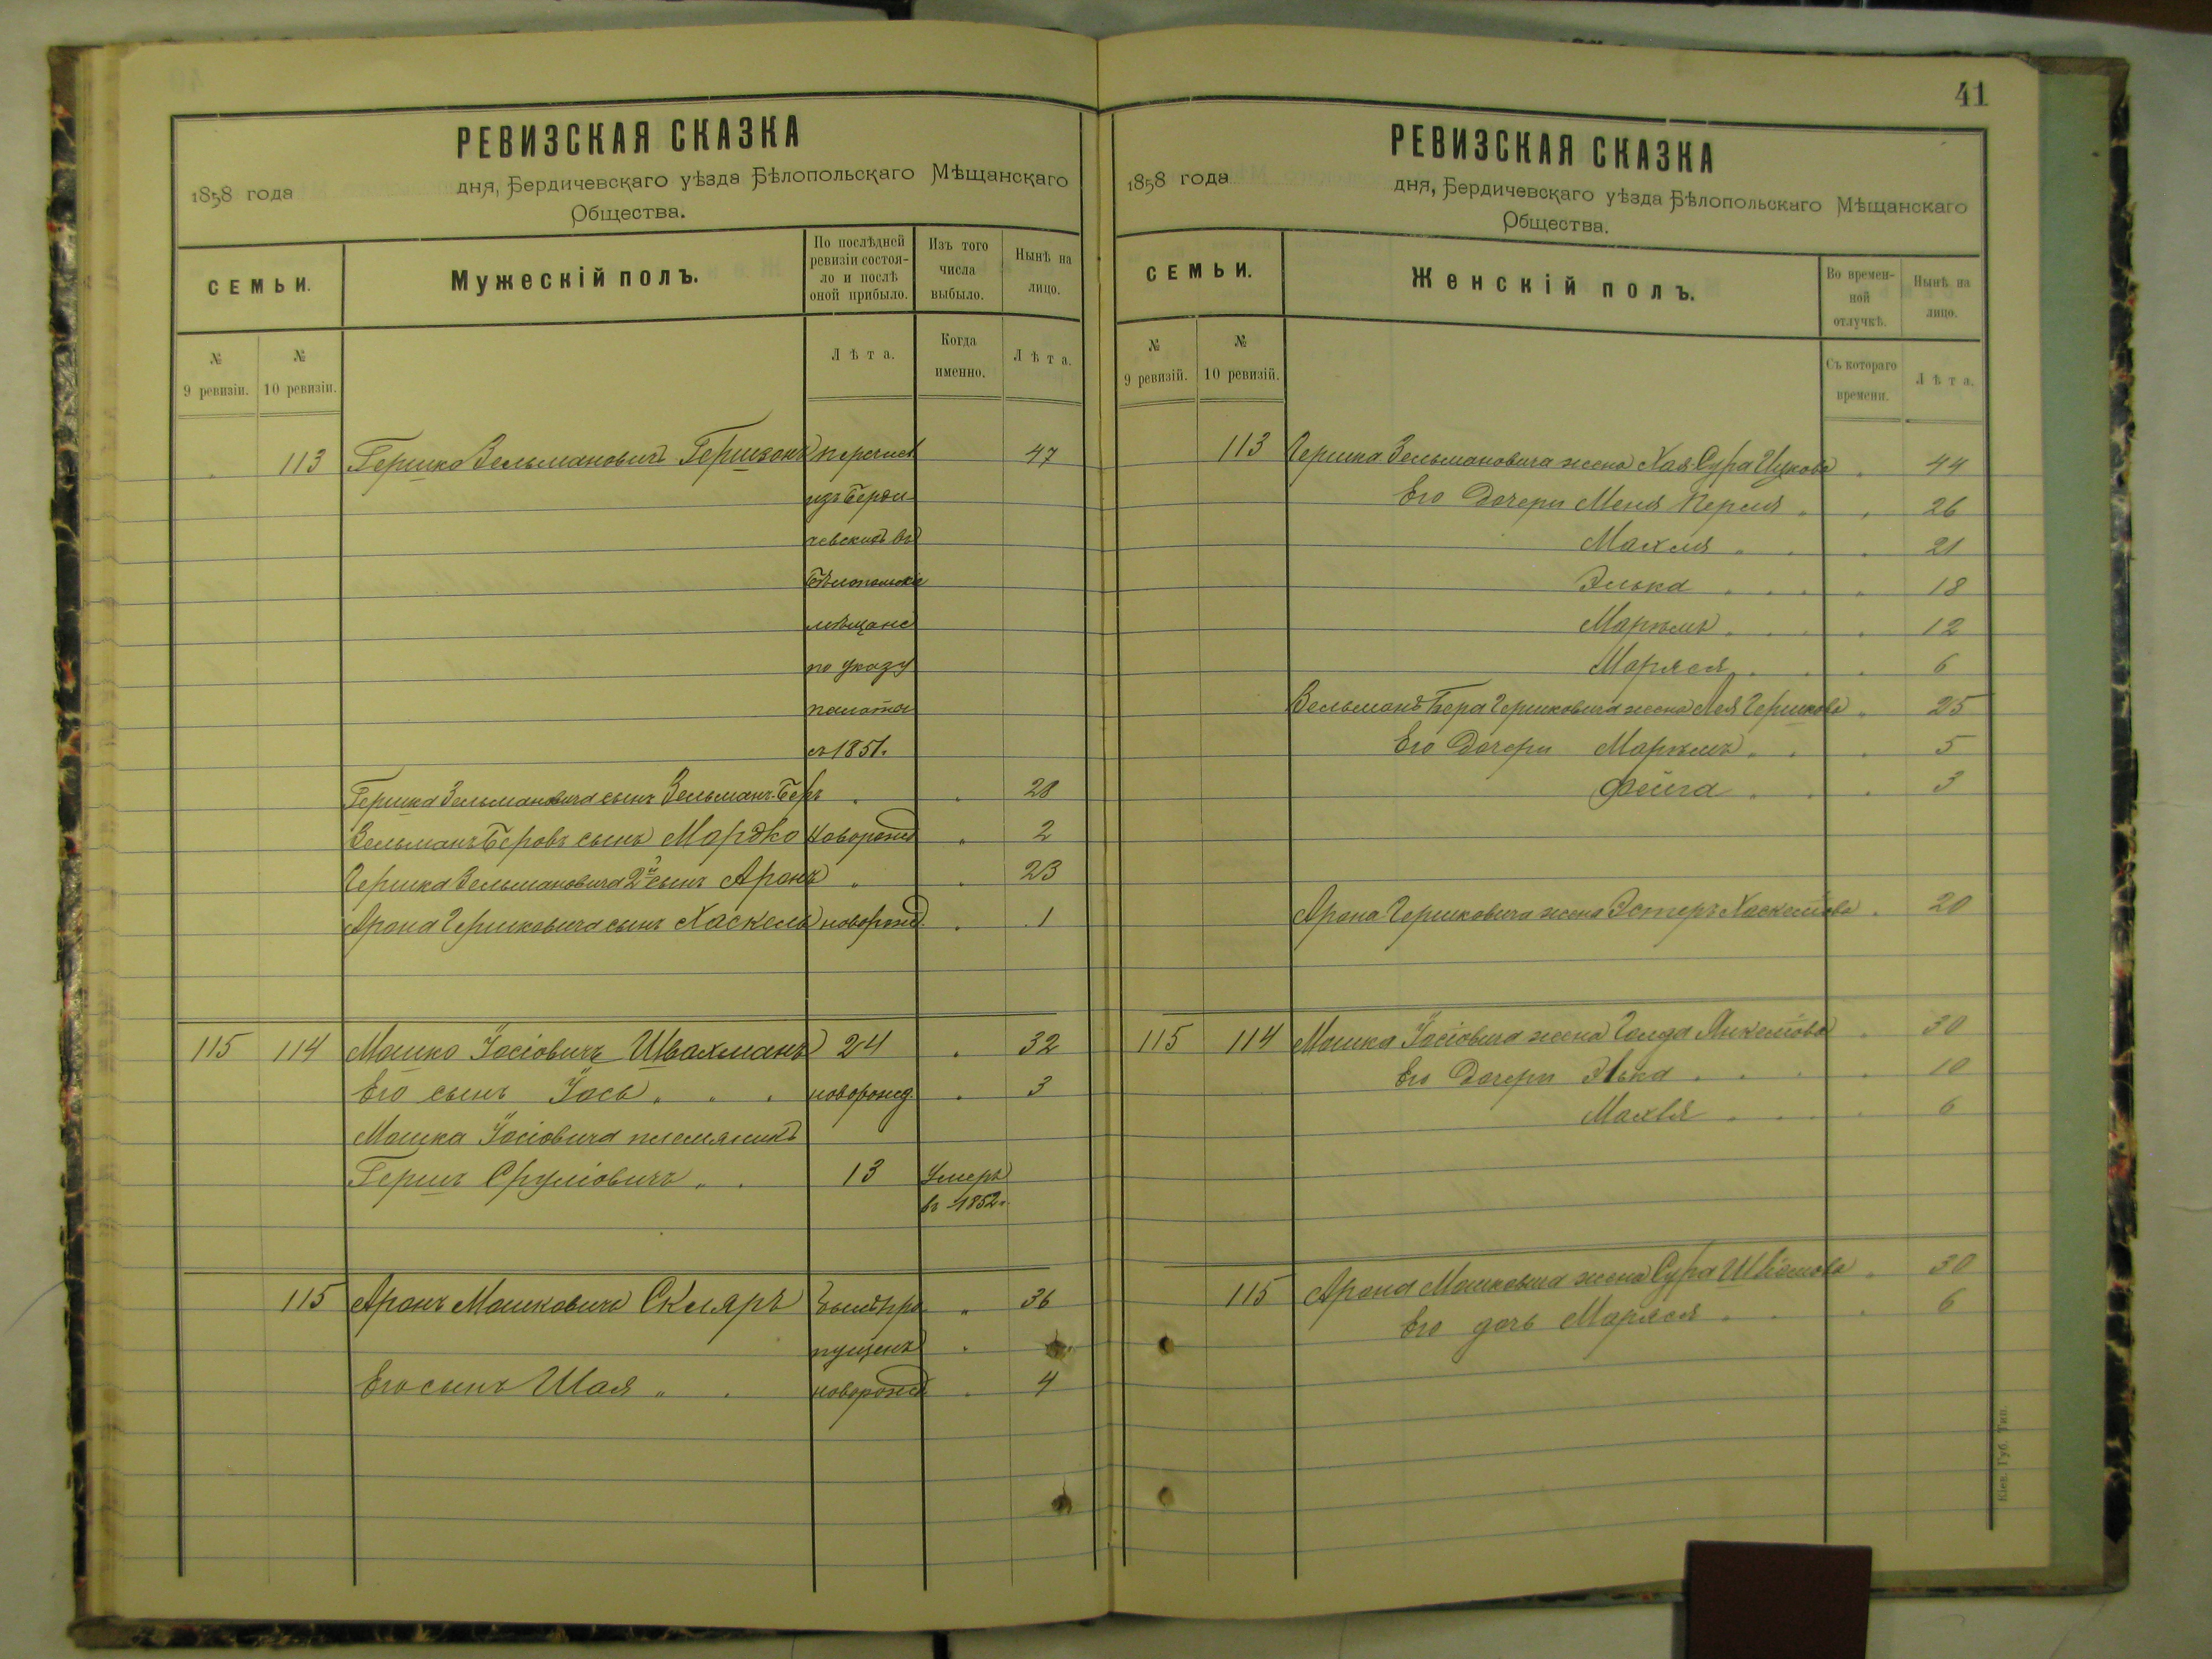 РЕВИЗСКАЯ СКАЗКА
1858 года дня, Бердичевскаго уѣзда Бѣлопольскаго Мѣщанскаго
Общества.
СЕМЬИ.
Мужескій полъ.
По послѣдней ревизіи состояло и послѣ оной прибыло.
Изъ того числа выбыло.
Нынѣ на лицо.
№ 9 ревизіи.
№ 10 ревизіи.
Лѣта.
Когда именно.
Лѣта.
113 Гершко Зельмановичъ Гершзонъ перечисл 47
изъ Берди
чевскихъ въ
Бѣлопольскіе
мѣщане
по указу
палаты
съ 1851.
Гершка Зельмановича сынъ Зельманъ-Беръ 28
Зельманъ Беровъ сынъ Мордко новорожд 2
Гершка Зельмановича 2й сынъ Аронъ 23
Арона Гершковича сынъ Хаскель новорожд. 1
115 114 Мошко Іосіовичъ Швахманъ 24 32
Его сынъ Іось новорожд. 3
Мошка Іосіовича племяникъ
Гершъ Сруліовичъ 13 Умеръ
въ 1852.
115 Аронъ Мошковичъ Скляръ былъ про 36
пущенъ
Его сынъ Шая новорожд 4
41
РЕВИЗСКАЯ СКАЗКА
1858 года дня, Бердичевскаго уѣзда Бѣлопольскаго Мѣщанскаго
Общества.
СЕМЬИ.
Женскій полъ.
Во временной отлучкѣ.
Нынѣ на лицо.
№ 9 ревизій.
№ 10 ревизій.
Съ котораго времени.
Лѣта.
113 Гершка Зельмановича жена Хая Сура 44
Его дочери Меня Перля 26
Махля 21
Элька 18
Маріямъ 12
Маряся 6
Зельманъ Бера Гершковича жена Лея Гершкова 25
Его дочери Маріямъ 5
Фейга 3
Арона Гершковича жена Эстеръ Хаскелёва 20
115 114 Мошка Іосіовича жена Голда Янкелёва 30
Его дочери Элька 10
Махля 6
115 Арона Мошковича жена Сура 30
Его дочь Маряся 6
Кіев. Губ. Тип.